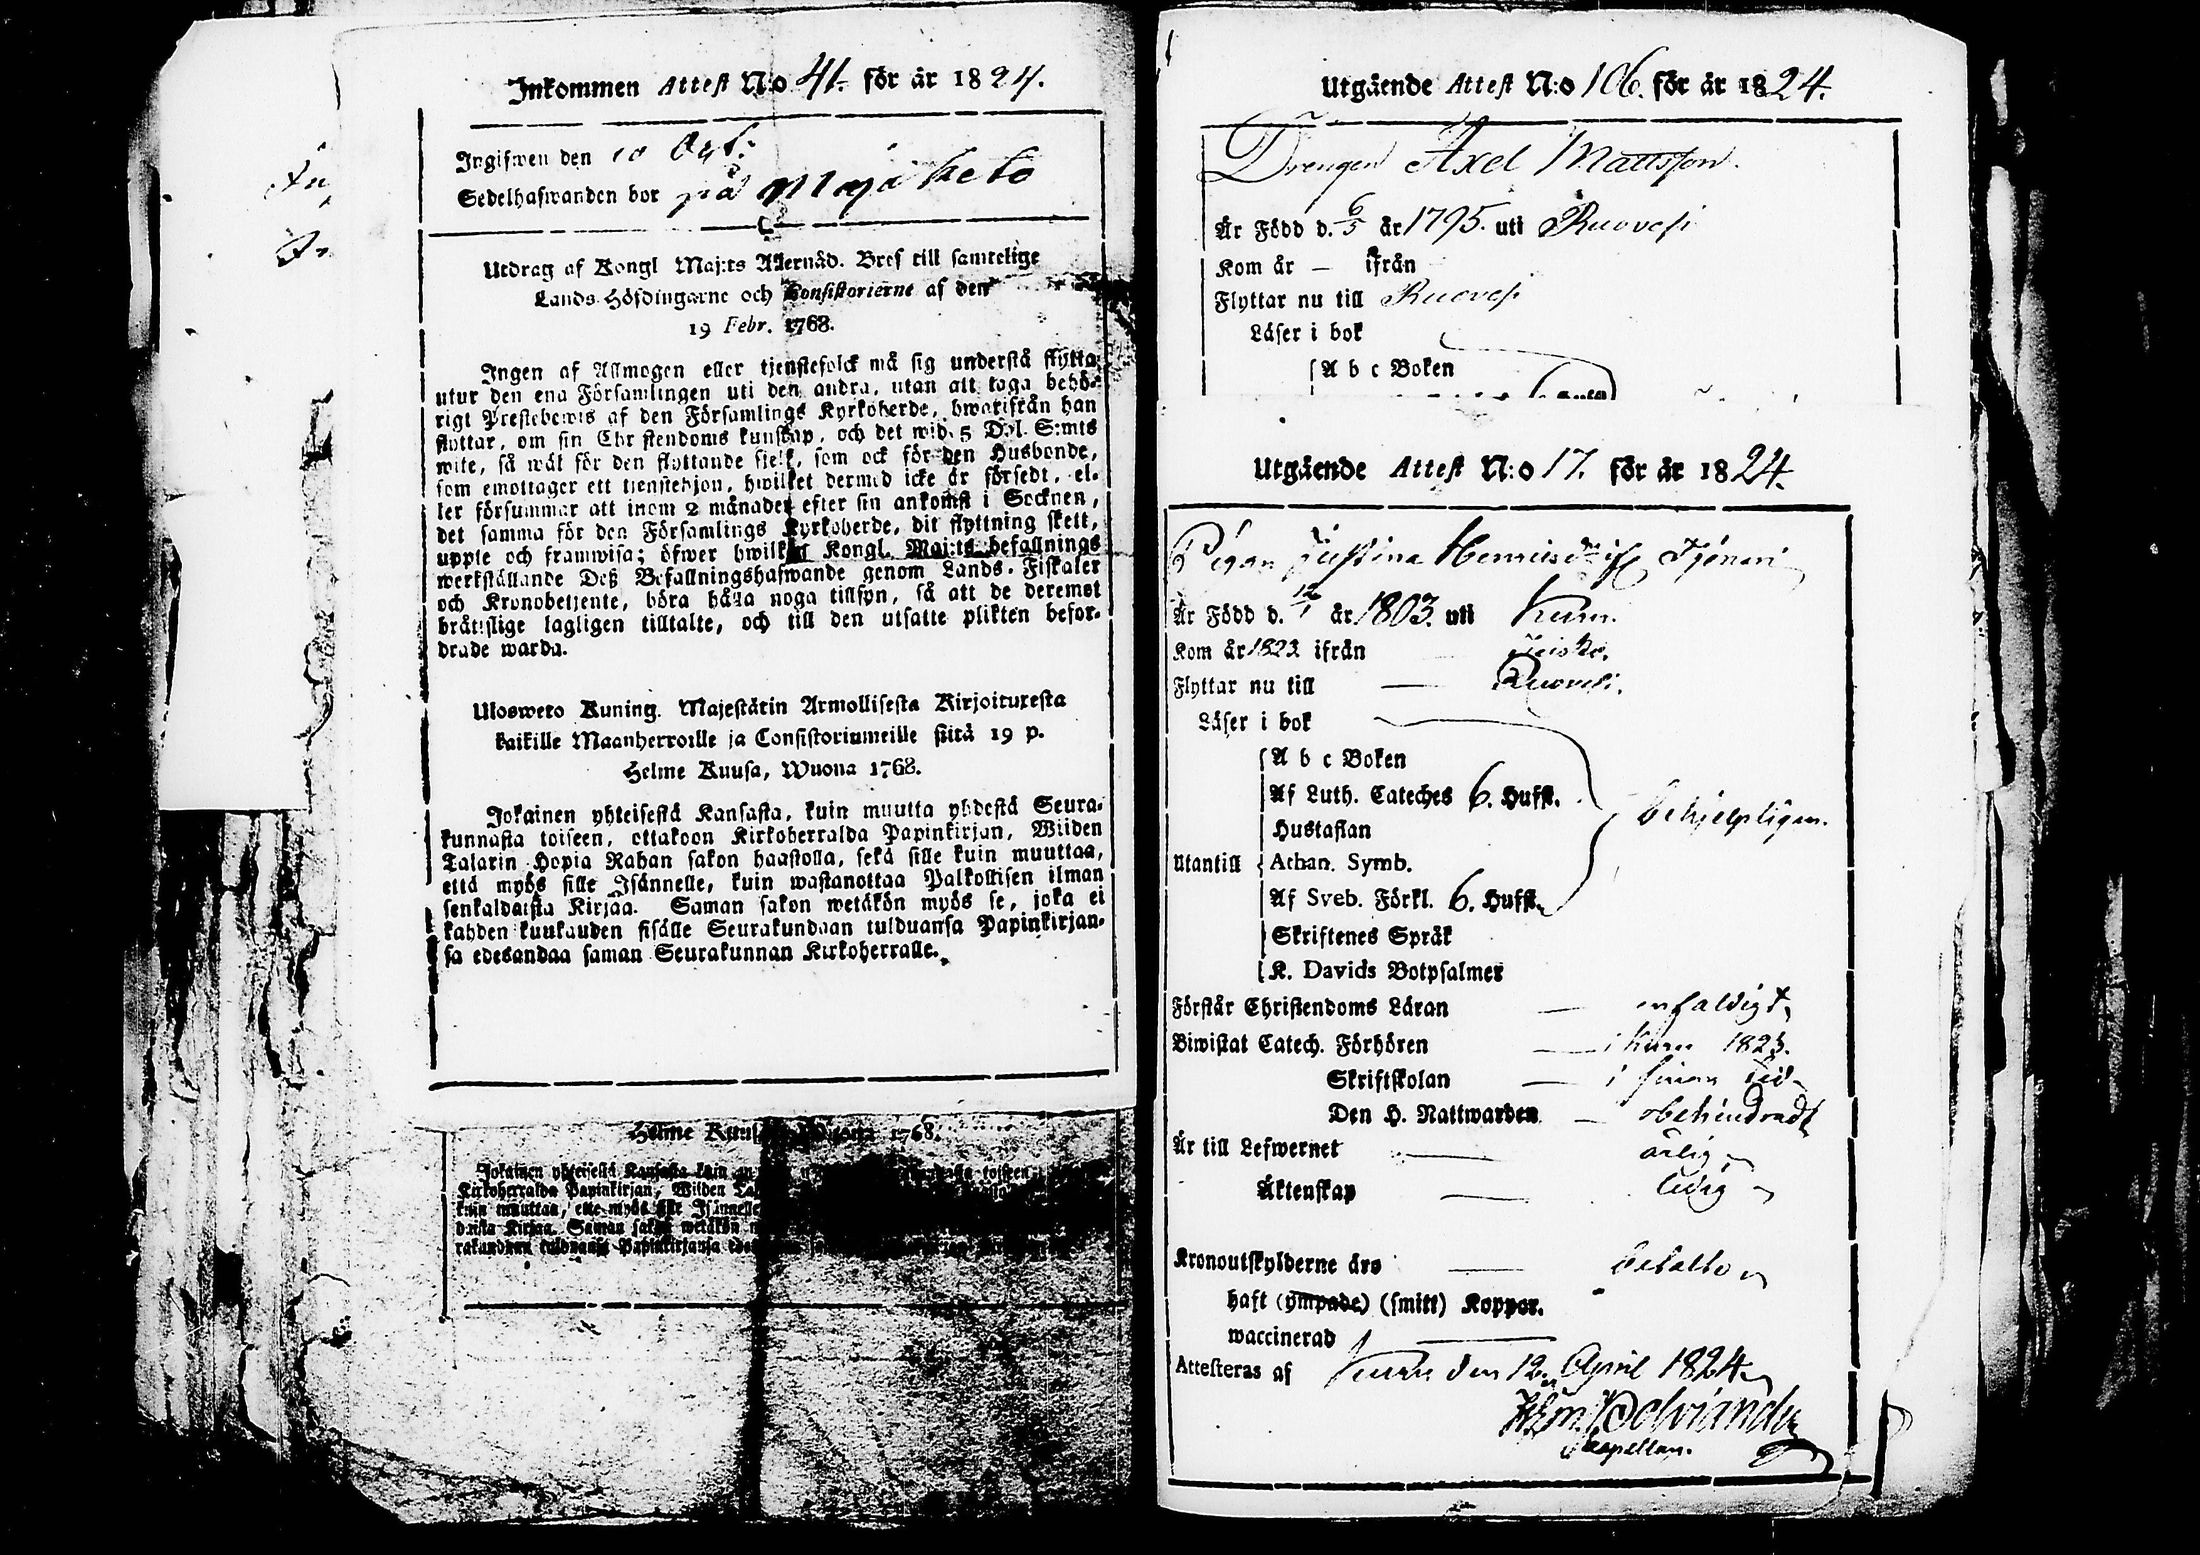 Inkommen Attest N:o 41. för år 1824.
Ingifwen den 10 Oct:
Sedelhafwanden bor på Majaketo
Utdrag af Kongl Maj:ts Allernåd. Bref till samtelige
Lands Höfdingarne och Consistorierne af den
19 Febr. 1768.
Ingen af Allmogen eller tjenstefolck må sig understå flytta
utur den ena Församlingen uti den andra, utan att taga behö-
rigt Prestebewis af den Församlings Kyrkoherde, hwarifrån han
flyttar, om sin Christendoms kunskap, och det wid 5 Dal. S:mts
wite, så wäl för den flyttande sielf, som ock för den Husbonde,
som emottager ett tjenstehjon, hwilket dermed icke är försedt, el-
ler försummar att inom 2 månader efter sin ankomst i Socknen,
det samma för den Församlings Kyrkoherde, dit flyttning skett,
uppte och framwisa; öfwer hwilken Kongl. Maj:ts befallnings
werkställande Deß Befallningshafwande genom Lands-Fiskaler
och Kronobetjente, böra hålla noga tillsyn, så att de deremot
brätslige lagligen tilltalte, och till den utsatte plikten befor-
drade warda.
Ulosweto Kuning. Majestätin Armollisesta Kirjoituxesta
kaikille Maanherroille ja Consistoriumeille siitä 19 p.
Helme Kuusa, Wuona 1768.
Jokainen yhteisestä Kansasta, kuin muutta yhdestä Seura-
kunnasta toiseen, ottakoon Kirkoherralda Papinkirjan, Wiiden
Talarin Hopia Rahan sakon haastolla, sekä sille kuin muuttaa,
että myös sille Isännelle, kuin wastanottaa Palkollisen ilman
senkaldaista Kirjaa. Saman sakon wetäkön myös se, joka ei
kahden kuukauden sisälle Seurakundaan tulduansa Papinkirjan-
sa edesandaa saman Seurakunnan Kirkoherralle.
Helme Kuusa Wuona 1768.
Jokainen yhteisestä Kansasta kuin toiseen
Kirkoherralda Papinkirjan, Wiiden
kuin muuttaa, että myös sille Isännelle
daista Kirjaa. Saman sakon wetäkön
rakundaan tulduansa Papinkirjansa
Utgående Attest N:o 106. för år 1824.
Drengen Axel Mattsson.
Är Född d. 6/5 år 1795. uti Ruovesi
Kom år — ifrån
Flyttar nu till Ruovesi
Läser i bok
A b c Boken
Utgående Attest N:o 17. för år 1824.
Pigan Justina Henricsdr
Är Född d. 12/1 år 1803. uti Kuru.
Kom år 1823 ifrån Teisko.
Flyttar nu till — Ruovesi.
Läser i bok
A b c Boken
Af Luth. Cateches 6. Hufst.
Hustaflan
behjelpligen.
Utantill Athan. Symb.
Af Sveb. Förkl. 6. Hufst.
Skriftenes Språk
K. Davids Botpsalmer
Förstår Christendoms Läran — enfaldigt
Biwistat Catech. Förhören — i Kuru 1823.
Skriftskolan — i sinom tid
Den H. Nattwarden — obehindradt
Är till Lefwernet — ärlig
Äktenskap — ledig
Kronoutskylderne äro — betalte
haft (ympade) (smitt) Koppor.
waccinerad —
Attesteras af Kuru den 12 April 1824
Capellan.